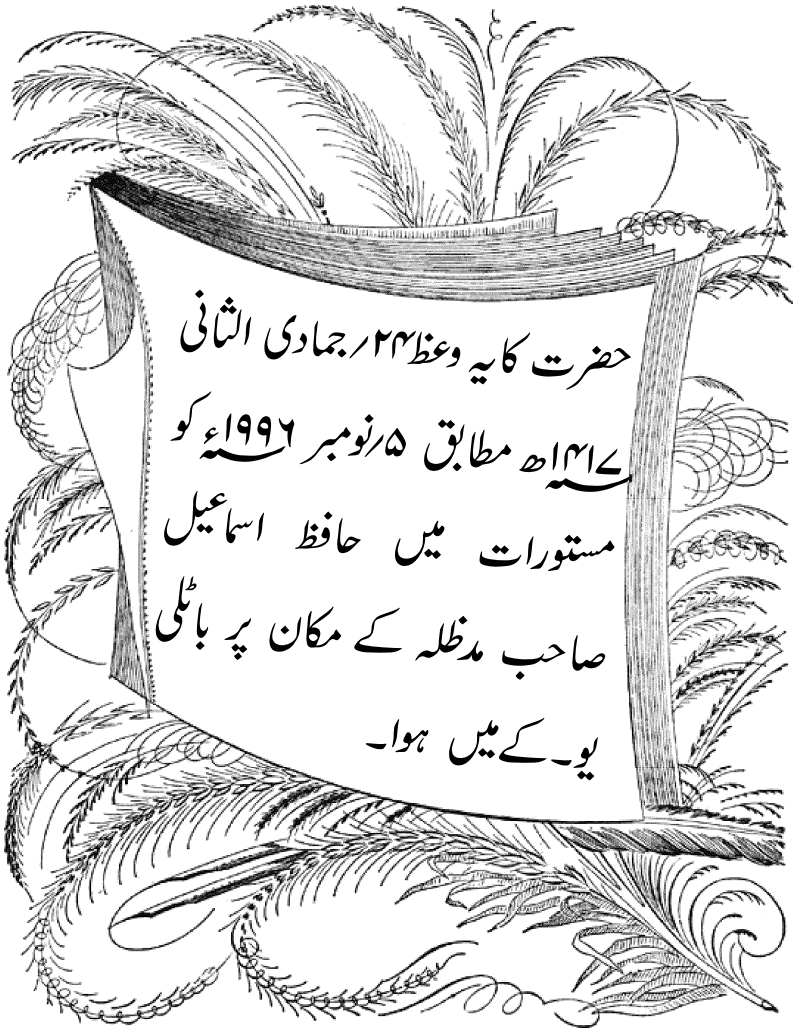 حضرت کا یہ وعظ ۲۴؍ جمادی الثانی
۱۴۱۷ھ مطابق ۵؍ نومبر ۱۹۹۶ء کو
مستورات میں حافظ اسماعیل
صاحب مدظلہ کے مکان پر باٹلی
یو۔کے میں ہوا۔